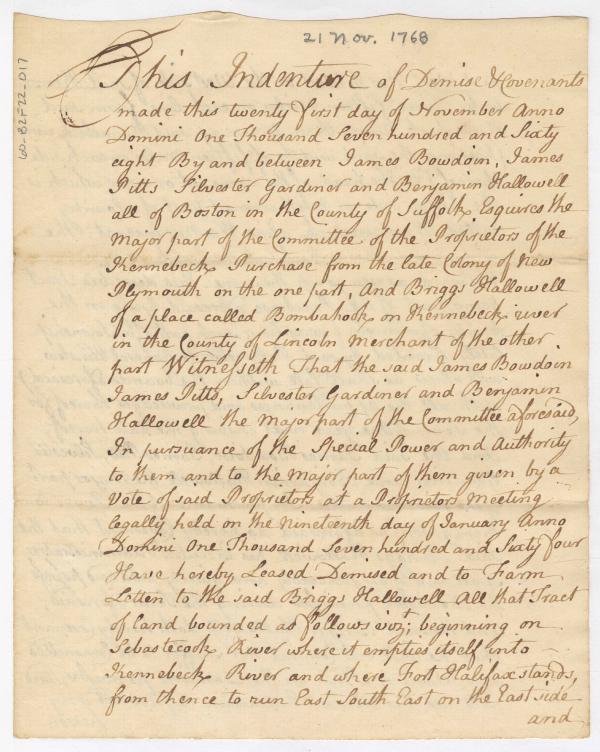 21 Nov. 1768
60-B2F22-017
This Indenture of Demise & Covenants
made this twenty first day of November Anno
Domini One Thousand Seven hundred and Sixty
eight By and between James Bowdoin, James
Pitts Silvester Gardiner and Benjamin Hallowell
all of Boston in the County of Suffolk Esquires the
Major part of the Committee of the Proprietors of the
Kennebeck Purchase from the late Colony of New
Plymouth on the one part, And Briggs Hallowell
of a place called Bombahook on Kennebeck river
in the County of Lincoln Merchant of the other
part Witnesseth That the said James Bowdoin
James Pitts, Silvester Gardiner and Benjamin
Hallowell the Major part of the Committee aforesaid,
In pursuance of the Special Power and Authority
to them and to the Major part of them given by a
Vote of said Proprietors at a Proprietors Meeting
legally held on the Nineteenth day of January Anno
Domini One Thousand Seven hundred and Sixty four
Have hereby Leased Demised and to Farm
Letten to the said Briggs Hallowell All that Tract
of land bounded as follows vizt; beginning on
Sebastecook River where it empties itself into
Kennebeck River and where Fort Halifax stands,
from thence to run East South East on the East side
and